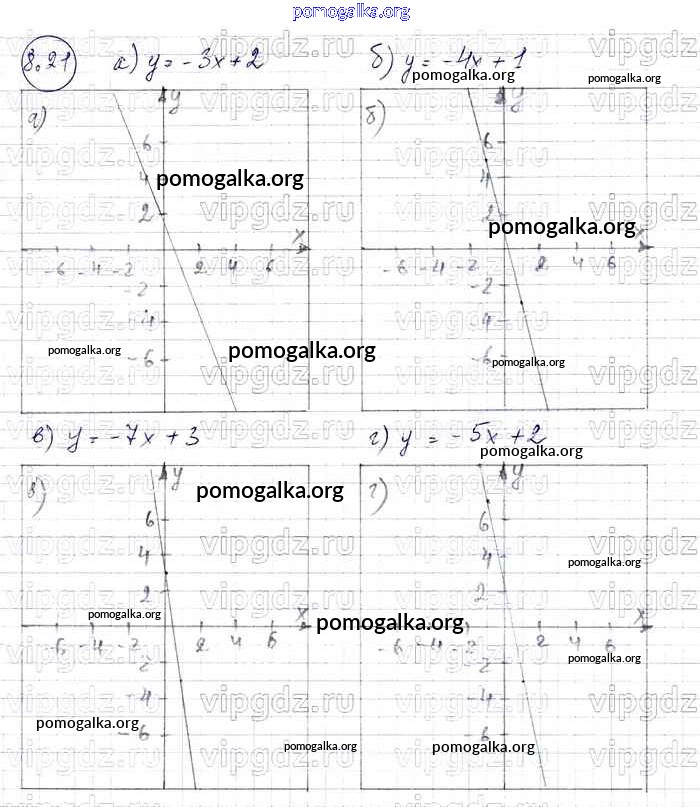 pomogalka.org
8.21 а) y = -3x + 2 б) y = -4x + 1
pomogalka.org pomogalka.org
а) y б) y
6 6
4 pomogalka.org 4
2 2
pomogalka.org
x x
-6 -4 -2 2 4 6 -6 -4 -2 2 4 6
-2 -2
-4 -4
pomogalka.org pomogalka.org
-6 -6 pomogalka.org
в) y = -7x + 3 г) y = -5x + 2
pomogalka.org
в) y г) y
pomogalka.org
6 6
4 4 pomogalka.org
2 2
pomogalka.org pomogalka.org
x x
-6 -4 -2 2 4 6 -6 -4 -2 2 4 6
-2 -2 pomogalka.org
-4 -4
pomogalka.org
-6 -6
pomogalka.org pomogalka.org